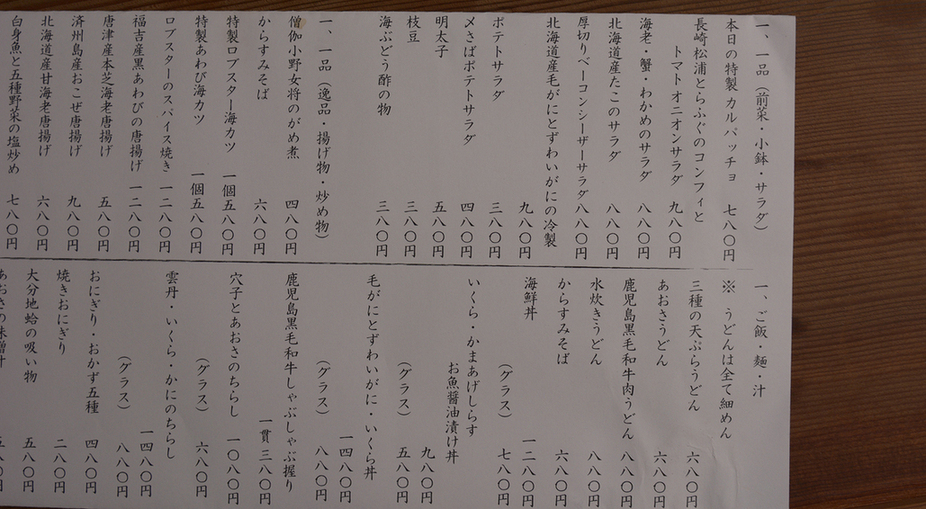 一、一品（前菜・小鉢・サラダ）
本日の特製 カルパッチョ 七八〇円
長崎松浦とらふぐのコンフィと
トマトオニオンサラダ 九八〇円
海老・蟹・わかめのサラダ 八八〇円
北海道産たこのサラダ 八八〇円
厚切りベーコンシーザーサラダ 八八〇円
北海道産毛がにとずわいがにの冷製
九八〇円
ポテトサラダ 三八〇円
〆さばポテトサラダ 四八〇円
明太子 五八〇円
枝豆 三八〇円
海ぶどう酢の物 三八〇円
一、一品（逸品・揚げ物・炒め物）
僧伽小野女将のがめ煮 四八〇円
からすみそば 六八〇円
特製ロブスター海カツ 一個五八〇円
特製あわび海カツ 一個五八〇円
ロブスターのスパイス焼き 一二八〇円
福吉産黒あわびの唐揚げ 一二八〇円
唐津産本芝海老唐揚げ 五八〇円
済州島産おこぜ唐揚げ 九八〇円
北海道産甘海老唐揚げ 六八〇円
白身魚と五種野菜の塩炒め 七八〇円
一、ご飯・麺・汁
※ うどんは全て細めん
三種の天ぷらうどん 六八〇円
あおさうどん 六八〇円
鹿児島黒毛和牛肉うどん 八八〇円
水炊きうどん 八八〇円
からすみそば 六八〇円
海鮮丼 一二八〇円
（グラス） 七八〇円
いくら・かまあげしらす
お魚醤油漬け丼 九八〇円
（グラス） 五八〇円
毛がにとずわいがに・いくら丼
一四八〇円
（グラス） 八八〇円
鹿児島黒毛和牛しゃぶしゃぶ握り
一貫 三八〇円
穴子とあおさのちらし 一〇八〇円
（グラス） 六八〇円
雲丹・いくら・かにのちらし
一四八〇円
（グラス） 八八〇円
おにぎり・おかず五種 四八〇円
焼きおにぎり 二八〇円
大分地蛤の吸い物 五八〇円
あおさの味噌汁